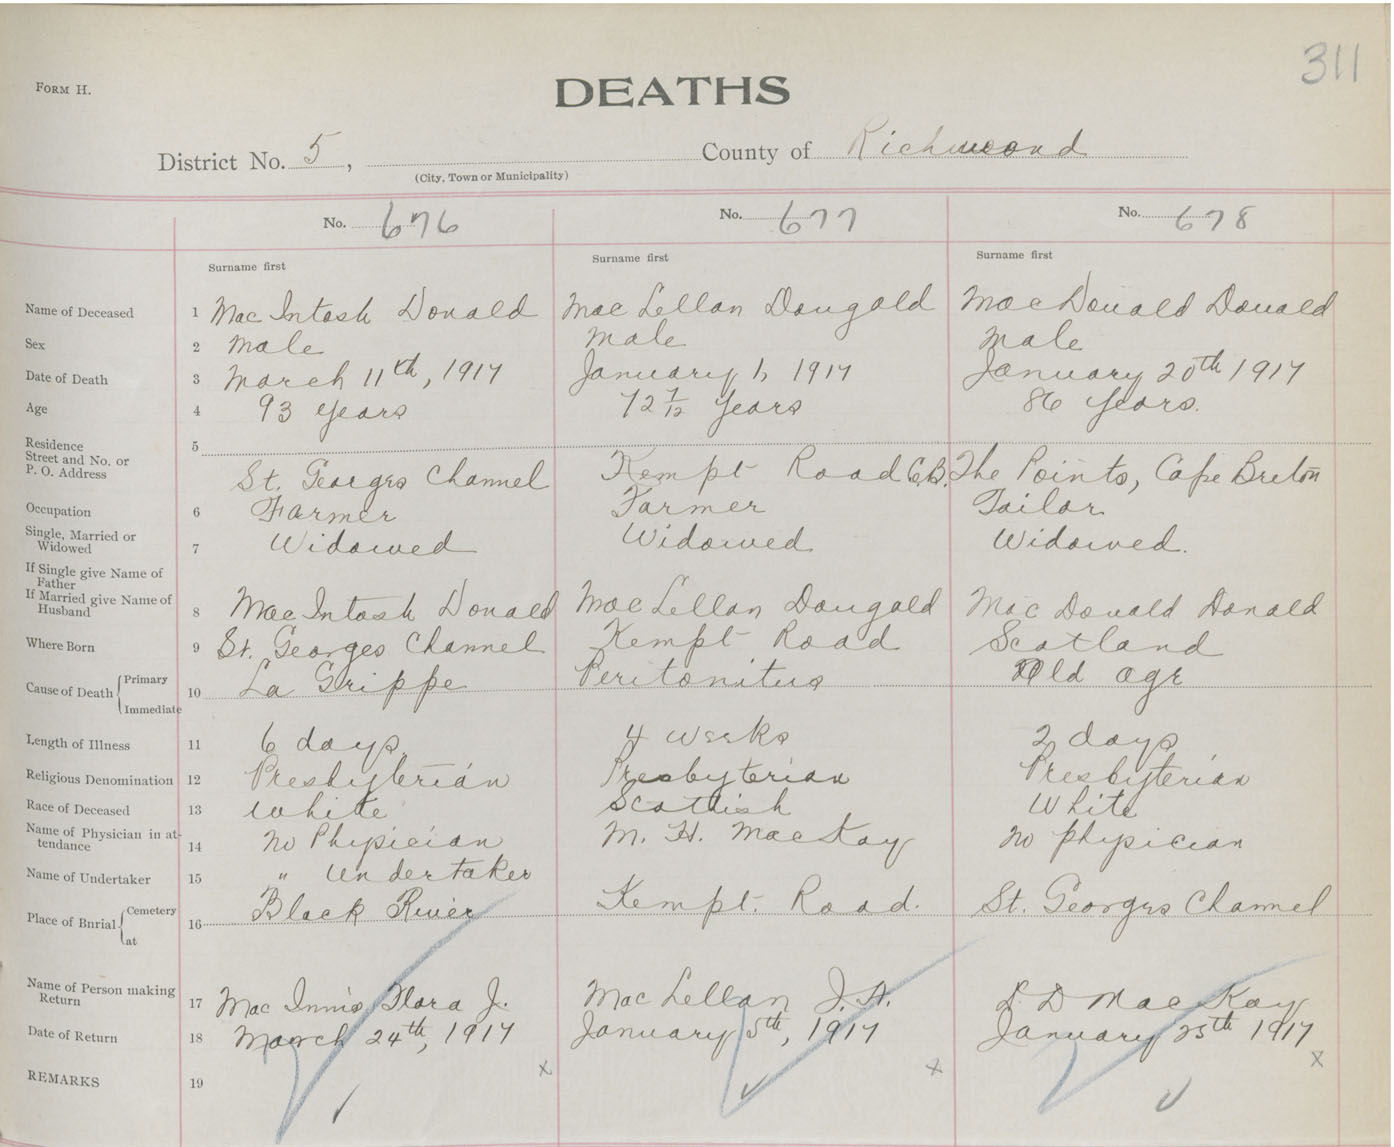 311
FORM H.
DEATHS
District No. 5, County of Richmond
(City, Town or Municipality)
No. 676 No. 677 No. 678
Surname first Surname first Surname first
Name of Deceased 1 MacIntosh Donald MacLellan Dougald MacDonald Donald
Sex 2 Male Male Male
Date of Death 3 March 11th, 1917 January 1, 1917 January 20th 1917
Age 4 93 years 72 7/12 years 86 years.
Residence 5
Street and No. or
P. O. Address St. Georges Channel Kempt Road C.B. The Points, Cape Breton
Occupation 6 Farmer Farmer Tailor
Single, Married or
Widowed 7 Widowed Widowed Widowed.
If Single give Name of
Father
If Married give Name of
Husband 8 MacIntosh Donald MacLellan Dougald MacDonald Donald
Where Born 9 St. Georges Channel Kempt Road Scotland
Cause of Death Primary 10 La Grippe Peritonitus Old age
Immediate
Length of Illness 11 6 days 4 weeks 2 days
Religious Denomination 12 Presbyterian Presbyterian Presbyterian
Race of Deceased 13 White Scottish White
Name of Physician in at-
tendance 14 No Physician M. H. MacKay No physician
Name of Undertaker 15 " Undertaker
Place of Burial Cemetery 16 Black River Kempt. Road. St. Georges Channel
at
Name of Person making
Return 17 MacInnis Flora J. MacLellan J. A. L D MacKay
Date of Return 18 March 24th, 1917 January 5th, 1917 January 25th 1917
x x x
REMARKS 19